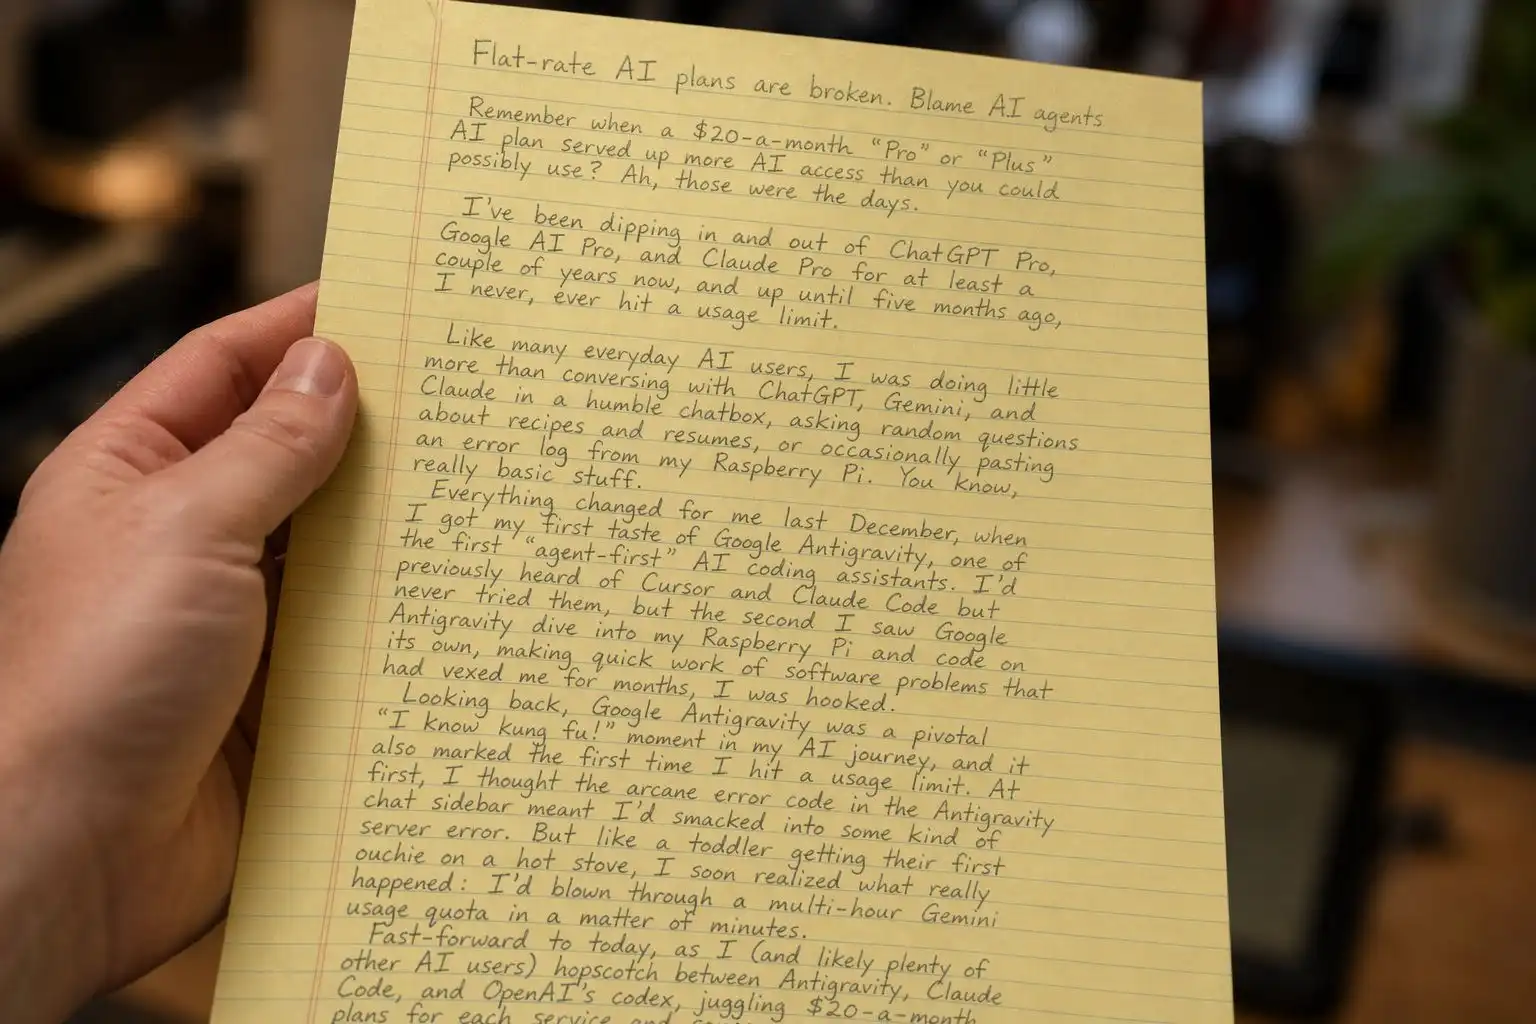 Flat-rate AI plans are broken. Blame AI agents
Remember when a $20-a-month "Pro" or "Plus"
AI plan served up more AI access than you could
possibly use? Ah, those were the days.
I've been dipping in and out of ChatGPT Pro,
Google AI Pro, and Claude Pro for at least a
couple of years now, and up until five months ago,
I never, ever hit a usage limit.
Like many everyday AI users, I was doing little
more than conversing with ChatGPT, Gemini, and
Claude in a humble chatbox, asking random questions
about recipes and resumes, or occasionally pasting
an error log from my Raspberry Pi. You know,
really basic stuff.
Everything changed for me last December, when
I got my first taste of Google Antigravity, one of
the first "agent-first" AI coding assistants. I'd
previously heard of Cursor and Claude Code but
never tried them, but the second I saw Google
Antigravity dive into my Raspberry Pi and code on
its own, making quick work of software problems that
had vexed me for months, I was hooked.
Looking back, Google Antigravity was a pivotal
"I know kung fu!" moment in my AI journey, and it
also marked the first time I hit a usage limit. At
first, I thought the arcane error code in the Antigravity
chat sidebar meant I'd smacked into some kind of
server error. But like a toddler getting their first
ouchie on a hot stove, I soon realized what really
happened: I'd blown through a multi-hour Gemini
usage quota in a matter of minutes.
Fast-forward to today, as I (and likely plenty of
other AI users) hopscotch between Antigravity, Claude
Code, and OpenAI's codex, juggling $20-a-month
plans for each service and